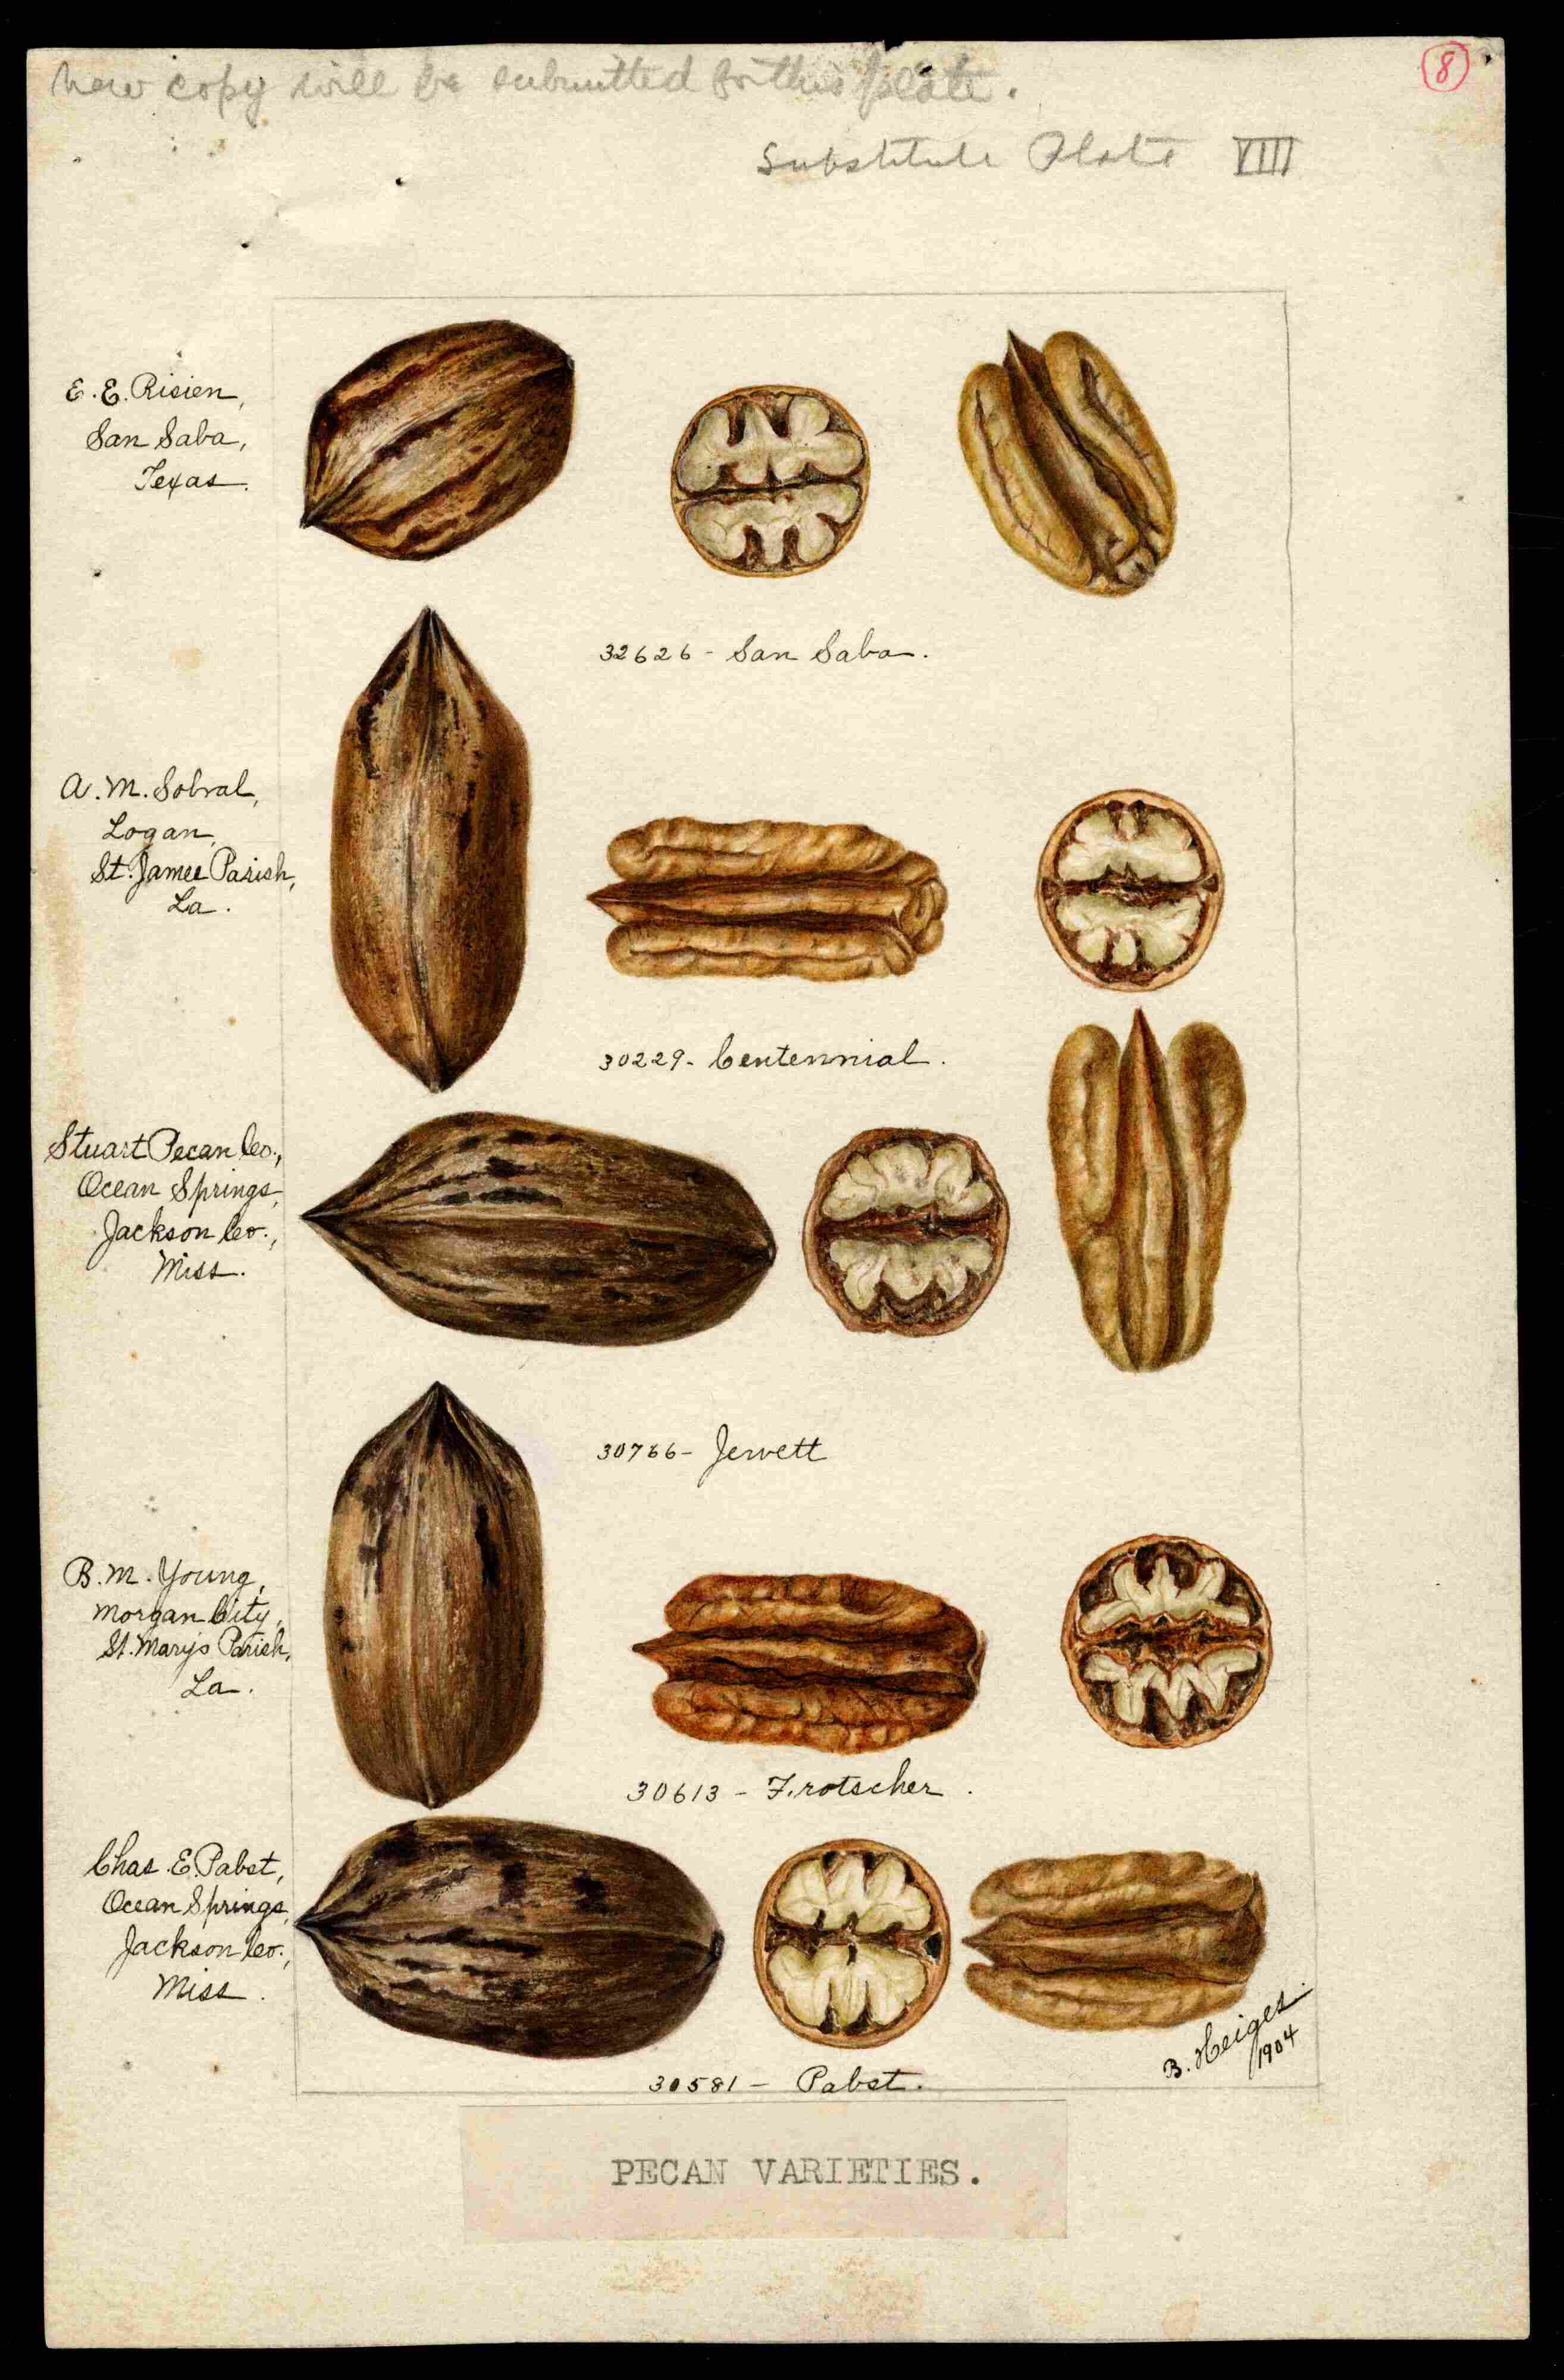 new copy will be submitted for this plate.
8
Substitute Plate VIII
E. E. Risien,
San Saba,
Texas.
32626 - San Saba.
A. M. Sobral,
Logan,
St. James Parish,
La.
30229 - Centennial.
Stuart Pecan Co.,
Ocean Springs,
Jackson Co.,
Miss.
30766 - Jewett
B. M. Young,
Morgan City,
St. Mary's Parish,
La.
30613 - Frotscher.
Chas. E. Pabst,
Ocean Springs,
Jackson Co.,
Miss.
30581 - Pabst.
B. Heiges.
1904
PECAN VARIETIES.